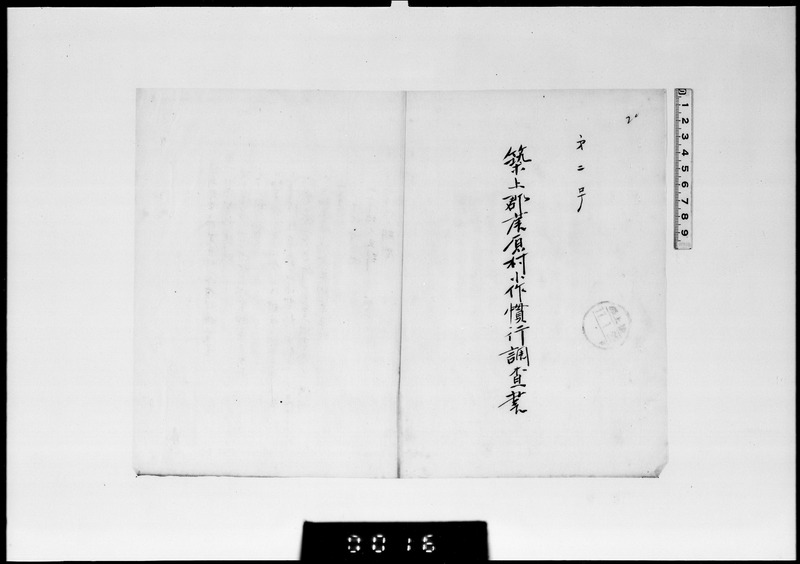 2.
第二号
築上郡唐原村小作慣行調査
1 2 3 4 5 6 7 8 9
0016